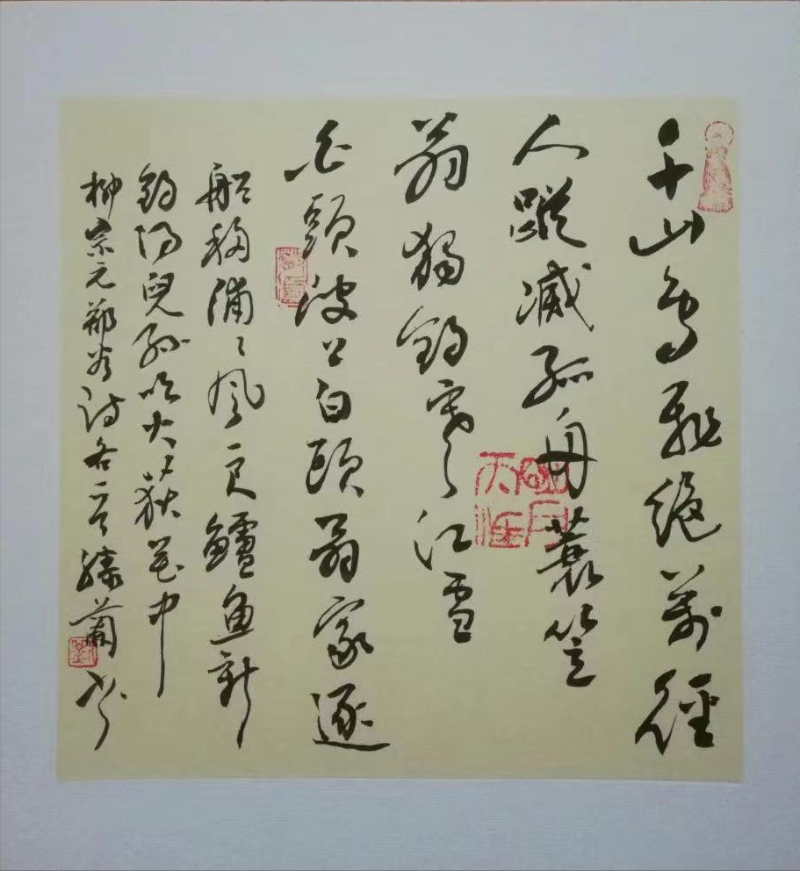 千山鳥飛絕萬徑
人蹤滅孤舟蓑笠
翁獨釣寒江雪
白頭波上白頭翁家逐
船移浦〻風一尺鱸魚新
釣得兒孫吹火荻花中
柳宗元鄭谷詩各一首